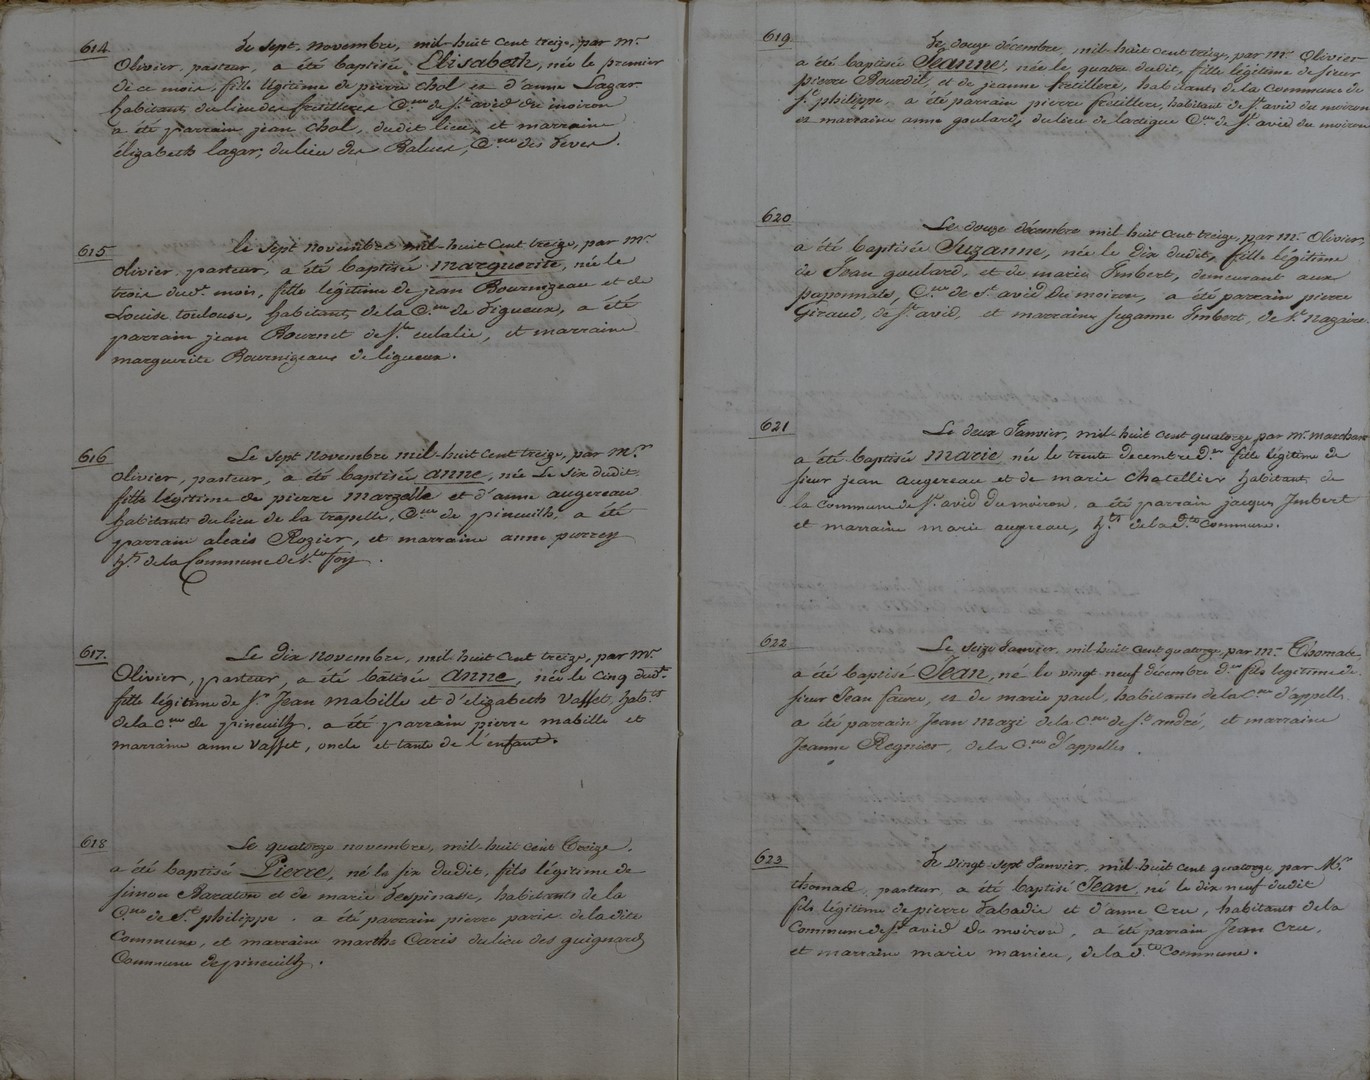 614
Le sept novembre, mil-huit cent treize, par mr.
Olivier, pasteur, a été baptisée Elisabeth, née le premier
de ce mois, fille légitime de pierre chol et d'anne Lagar
habitants du lieu des freilleres Cne de st avid du moiron
a été parrain jean Chol, dudit lieu, et marraine
élizabeth lagar, du lieu des Balues, Cne des Leves.
615
le sept novembre mil-huit cent treize, par mr.
olivier pasteur, a été baptisée marguerite, née le
trois dudt. mois, fille légitime de jean Bournizeau et de
Louise toulouse, habitants de la Cne de Ligueux, a été
parrain jean Bournet de Ste. eulalie, et marraine
marguerite Bournizeau de ligueux.
616
Le sept novembre mil-huit cent treize, par mr.
Olivier, pasteur, a été baptisée anne, née Le six dudit
fille légitime de pierre margelle et d'anne augereau
habitants du lieu de la trapelle, Cne de pineuilh, a été
parrain alexis Rozier, et marraine anne
hts de la Commune de Ste foy.
617.
Le dix novembre, mil-huit cent treize, par mr.
Olivier, pasteur, a été batisée anne, née le cinq dudt.
fille légitime de sr. Jean mabille et d'élizabeth Vasset, habts
de la Cne de pineuilh. a été parrain pierre mabille et
marraine anne Vasset, oncle et tante de l'enfant.
618
Le quatorze novembre, mil-huit cent Treize,
a été baptisé Pierre, né le six dudit, fils légitime de
simon Baraton et de marie Despinasse, habitants de la
Cne de St. philippe. a été parrain pierre paris de ladite
Commune, et marraine marthe Caris du lieu des guignards
Commune de pineuilh.
619
Le douze décembre, mil-huit cent treize, par mr Olivier
a été baptisée Jeanne, née le quatre dudit, fille légitime de sieur
pierre Bourdil, et de jeanne freillere, habitants de la Commune de
St. philippe, a été parrain pierre freillere, habitant de St. avid du moiron
et marraine anne goulard, du lieu de lartigue Cne de St. avid du moiron
620
Le douze décembre mil huit cent treize, par mr. Olivier,
a été baptisée Suzanne, née le Dix dudit, fille légitime
de Jean goulard, et de marie Imbert, demeurant aux
paponnats, Cne de St. avid du moiron, a été parrain pierre
Giraud, de St. avid et marraine suzanne Imbert, de St. Nazaire.
621
Le deux Janvier, mil-huit cent quatorze par mr. marchan
a été baptisée marie née le trente decembre der. fille légitime de
sieur jean augereau et de marie chatellier habitants de
la commune de St. avid du moiron, a été parrain jacques Imbert
et marraine marie augreau, hts. de la dte. commune.
622
Le seize Janvier, mil huit cent quatorze, par mr. Thomade
a été baptisé Jean, né le vingt neuf décembre der fils legitime de
sieur Jean faure, et de marie paul, habitants de la Cne d'appelles
a été parrain Jean mazi de la Cne de St. andré, et marraine
Jeanne Regnier, de la Cne d'appelles.
623
Le vingt-sept Janvier, mil-huit cent quatorze, par Mr.
thomade, pasteur, a été baptisé Jean, né le dix neuf dudit
fils légitime de pierre Labadie et d'anne Cru, habitants de la
Commune de St avid du moiron, a été parrain Jean Cru,
et marraine marie manieu, de la dte Commune.